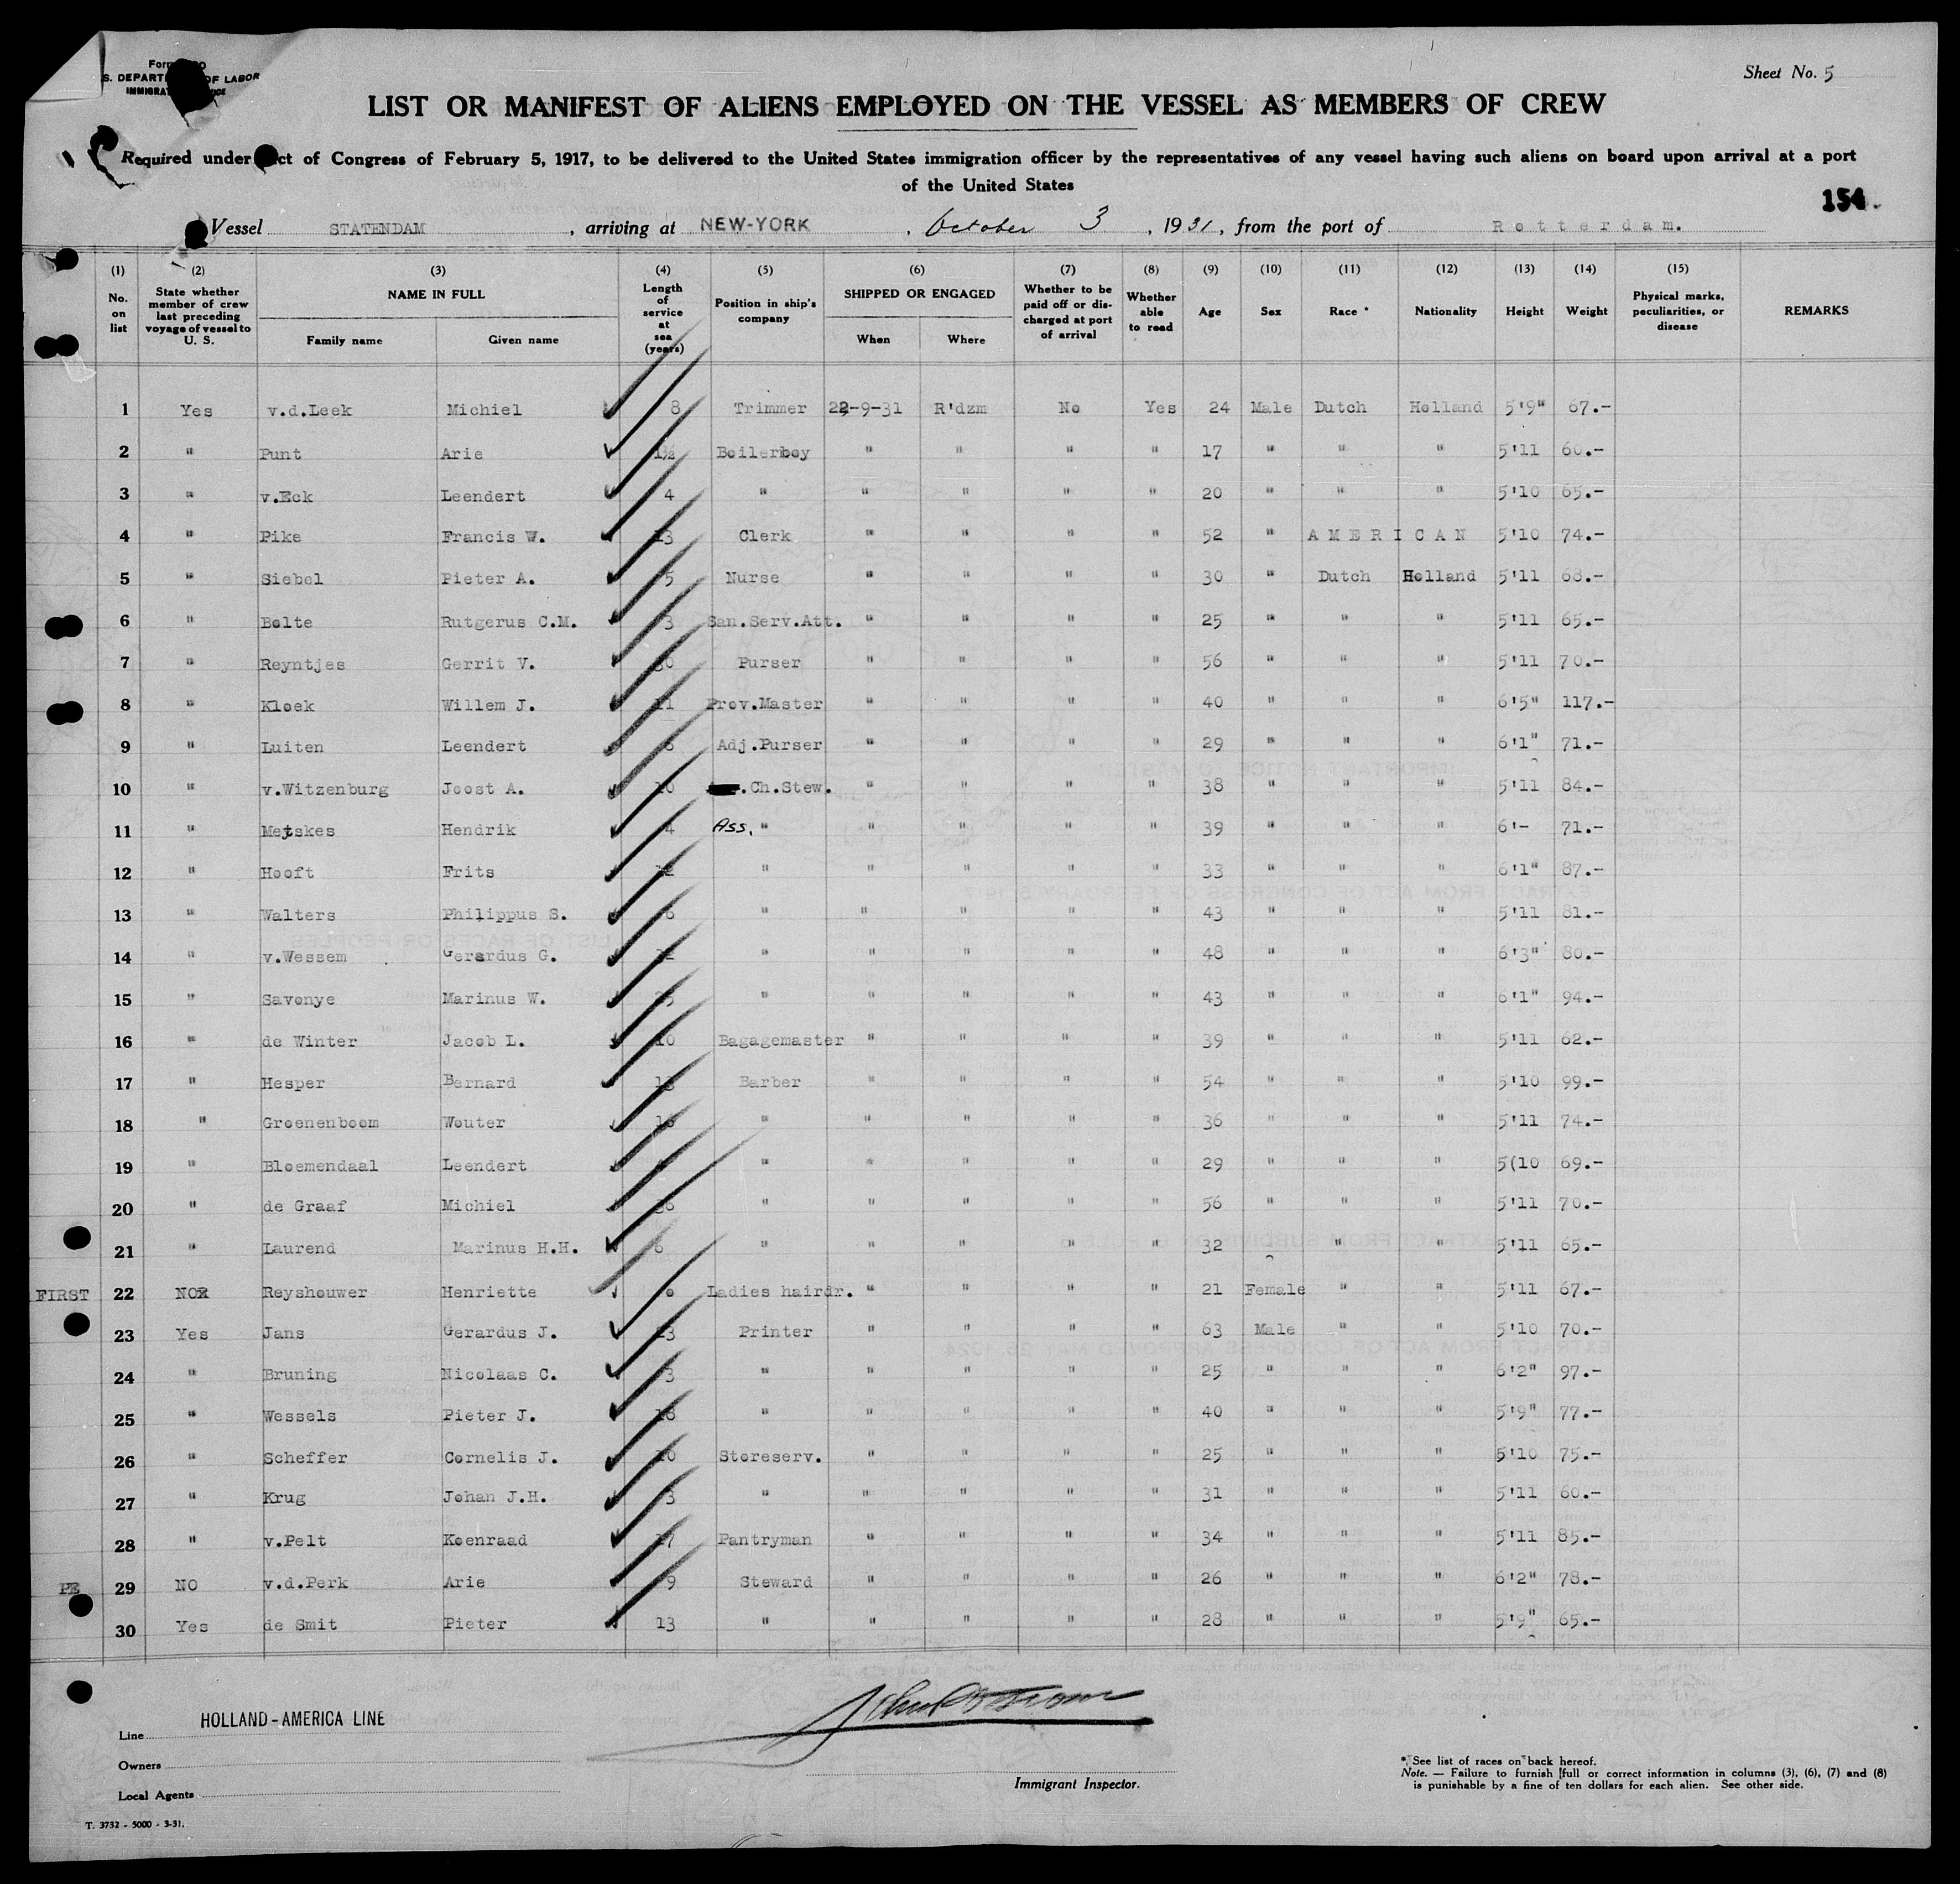 Sheet No. 5
S. DEPART OF LABOR
LIST OR MANIFEST OF ALIENS EMPLOYED ON THE VESSEL AS MEMBERS OF CREW
Required under ct of Congress of February 5, 1917, to be delivered to the United States immigration officer by the representatives of any vessel having such aliens on board upon arrival at a port
of the United States
154.
Vessel STATENDAM, arriving at NEW-YORK, October 3, 1931, from the port of Rotterdam.
(1) (2) (3) (4) (5) (6) (7) (8) (9) (10) (11) (12) (13) (14) (15)
No. on list State whether member of crew last preceding voyage of vessel to U. S. NAME IN FULL Family name Given name Length of service at sea (years) Position in ship's company SHIPPED OR ENGAGED When Where Whether to be paid off or discharged at port of arrival Whether able to read Age Sex Race * Nationality Height Weight Physical marks, peculiarities, or disease REMARKS
1 Yes v.d.Leek Michiel 8 Trimmer 22-9-31 R'dzm No Yes 24 Male Dutch Holland 5'9" 67.-
2 " Punt Arie 1½ Boilerboy " " " " 17 " " " 5'11 60.-
3 " v.Eck Leendert 4 " " " " " 20 " " " 5'10 65.-
4 " Pike Francis W. 13 Clerk " " " " 52 " AMERICAN 5'10 74.-
5 " Siebel Pieter A. 5 Nurse " " " " 30 " Dutch Holland 5'11 68.-
6 " Bolte Rutgerus C.M. 3 San.Serv.Att. " " " " 25 " " " 5'11 65.-
7 " Reyntjes Gerrit V. 30 Purser " " " " 56 " " " 5'11 70.-
8 " Kloek Willem J. 11 Prov.Master " " " " 40 " " " 6'5" 117.-
9 " Luiten Leendert 6 Adj.Purser " " " " 29 " " " 6'1" 71.-
10 " v.Witzenburg Joost A. .Ch.Stew. " " " " 38 " " " 5'11 84.-
11 " Metskes Hendrik 4 Ass. " " " " " 39 " " " 6'- 71.-
12 " Hooft Frits " " " " " 33 " " " 6'1" 87.-
13 " Walters Philippus S. 6 " " " " " 43 " " " 5'11 81.-
14 " v.Wessem Gerardus G. " " " " " 48 " " " 6'3" 80.-
15 " Savonye Marinus W. " " " " " 43 " " " 6'1" 94.-
16 " de Winter Jacob L. 10 Bagagemaster " " " " 39 " " " 5'11 62.-
17 " Hesper Bernard Barber " " " " 54 " " " 5'10 99.-
18 " Groenenboom Wouter 16 " " " " " 36 " " " 5'11 74.-
19 " Bloemendaal Leendert " " " " " 29 " " " 5(10 69.-
20 " de Graaf Michiel " " " " " 56 " " " 5'11 70.-
21 " Laurend Marinus H.H. 6 " " " " " 32 " " " 5'11 65.-
FIRST 22 NO Reyshouwer Henriette Ladies hairdr. " " " " 21 Female " " 5'11 67.-
23 Yes Jans Gerardus J. Printer " " " " 63 Male " " 5'10 70.-
24 " Bruning Nicolaas C. 3 " " " " " 25 " " " 6'2" 97.-
25 " Wessels Pieter J. 18 " " " " " 40 " " " 5'9" 77.-
26 " Scheffer Cornelis J. 10 Storeserv. " " " " 25 " " " 5'10 75.-
27 " Krug Johan J.H. 3 " " " " " 31 " " " 5'11 60.-
28 " v.Pelt Koenraad 17 Pantryman " " " " 34 " " " 5'11 85.-
PE 29 NO v.d.Perk Arie 9 Steward " " " " 26 " " " 6'2" 78.-
30 Yes de Smit Pieter 13 " " " " " 28 " " " 5'9" 65.-
Line HOLLAND-AMERICA LINE
Owners
Local Agents
Immigrant Inspector.
* See list of races on back hereof.
Note. — Failure to furnish full or correct information in columns (3), (6), (7) and (8)
is punishable by a fine of ten dollars for each alien. See other side.
T. 3732 - 5000 - 3-31.